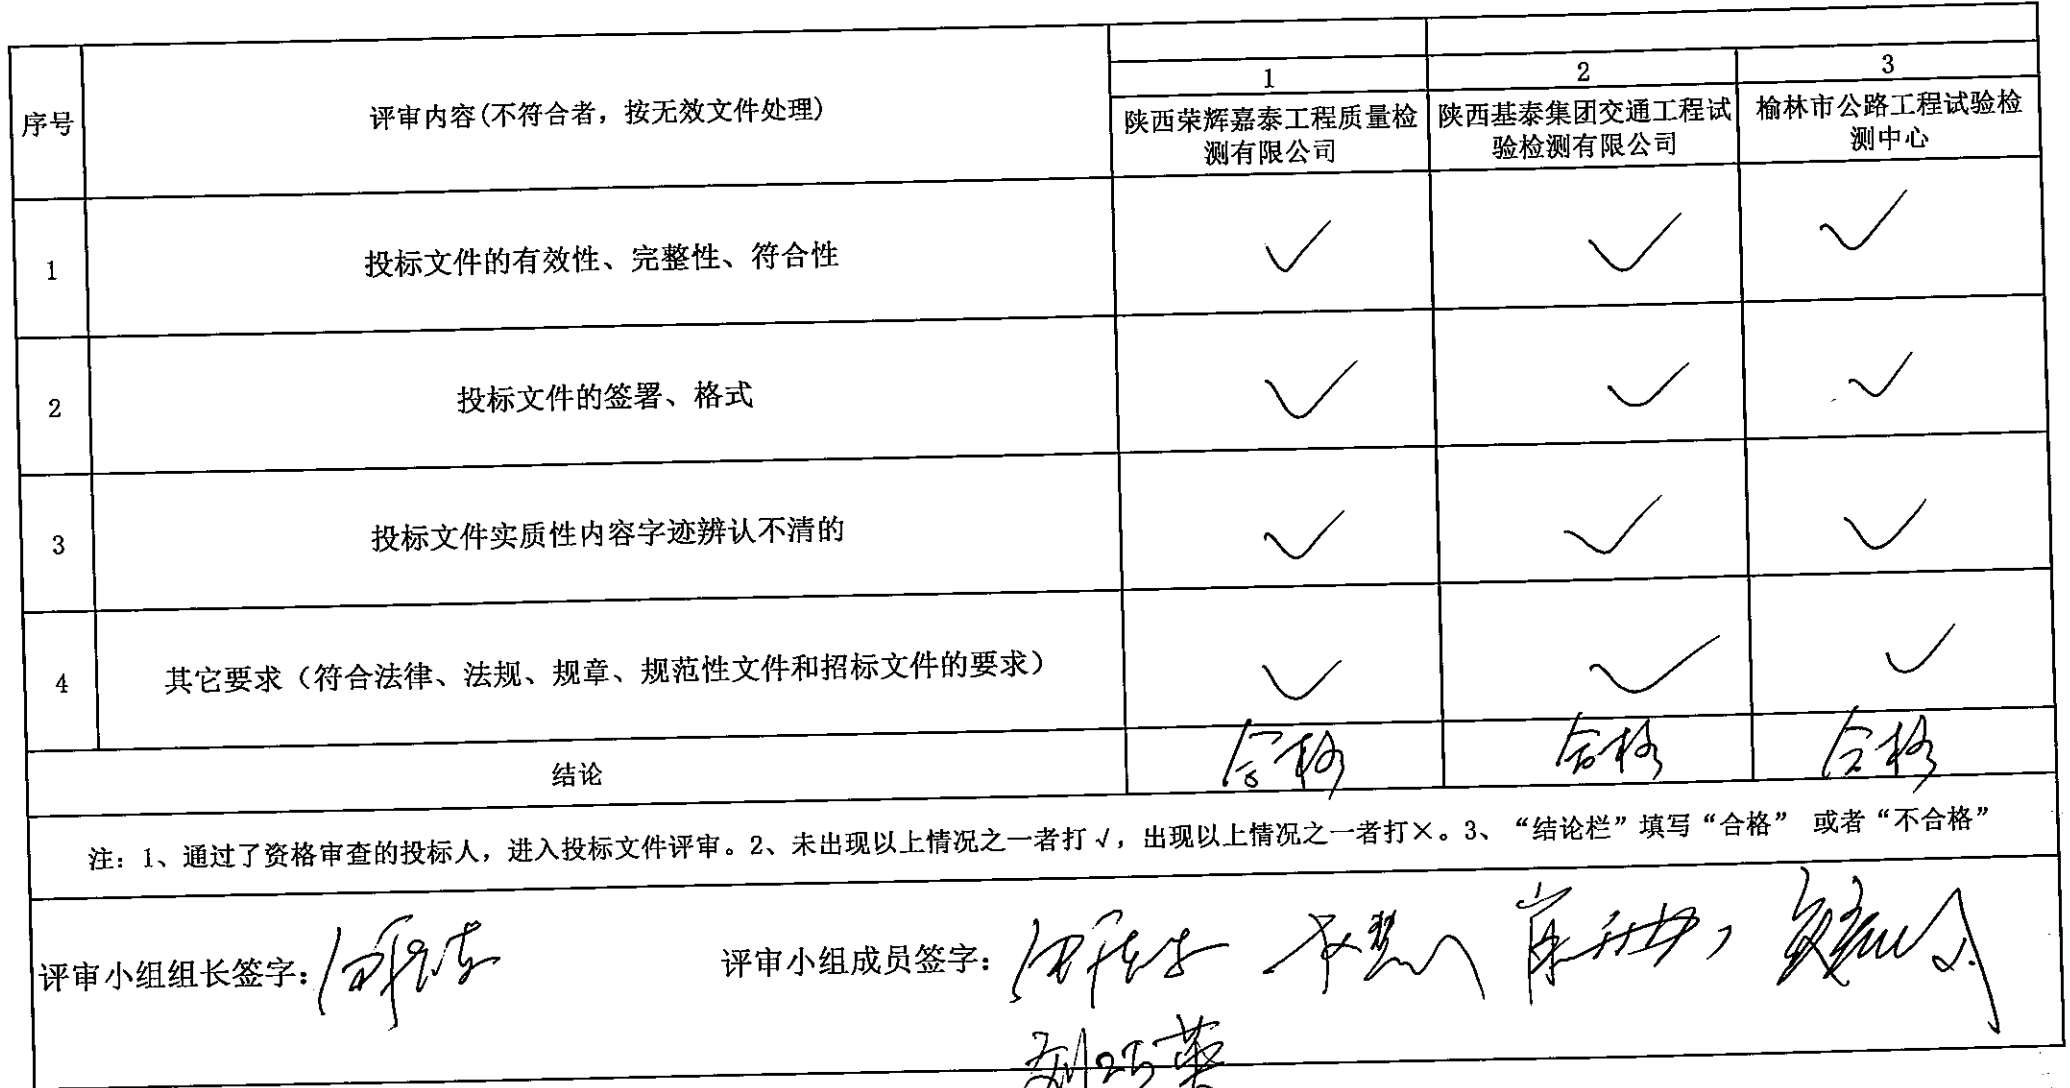 1 2 3
序号 评审内容(不符合者，按无效文件处理) 陕西荣辉嘉泰工程质量检 陕西基泰集团交通工程试 榆林市公路工程试验检
测有限公司 验检测有限公司 测中心
1 投标文件的有效性、完整性、符合性 ✓ ✓ ✓
2 投标文件的签署、格式 ✓ ✓ ✓
3 投标文件实质性内容字迹辨认不清的 ✓ ✓ ✓
4 其它要求（符合法律、法规、规章、规范性文件和招标文件的要求） ✓ ✓ ✓
结论 合格 合格 合格
注：1、通过了资格审查的投标人，进入投标文件评审。2、未出现以上情况之一者打√，出现以上情况之一者打×。3、“结论栏”填写“合格” 或者“不合格”
评审小组组长签字： 评审小组成员签字：